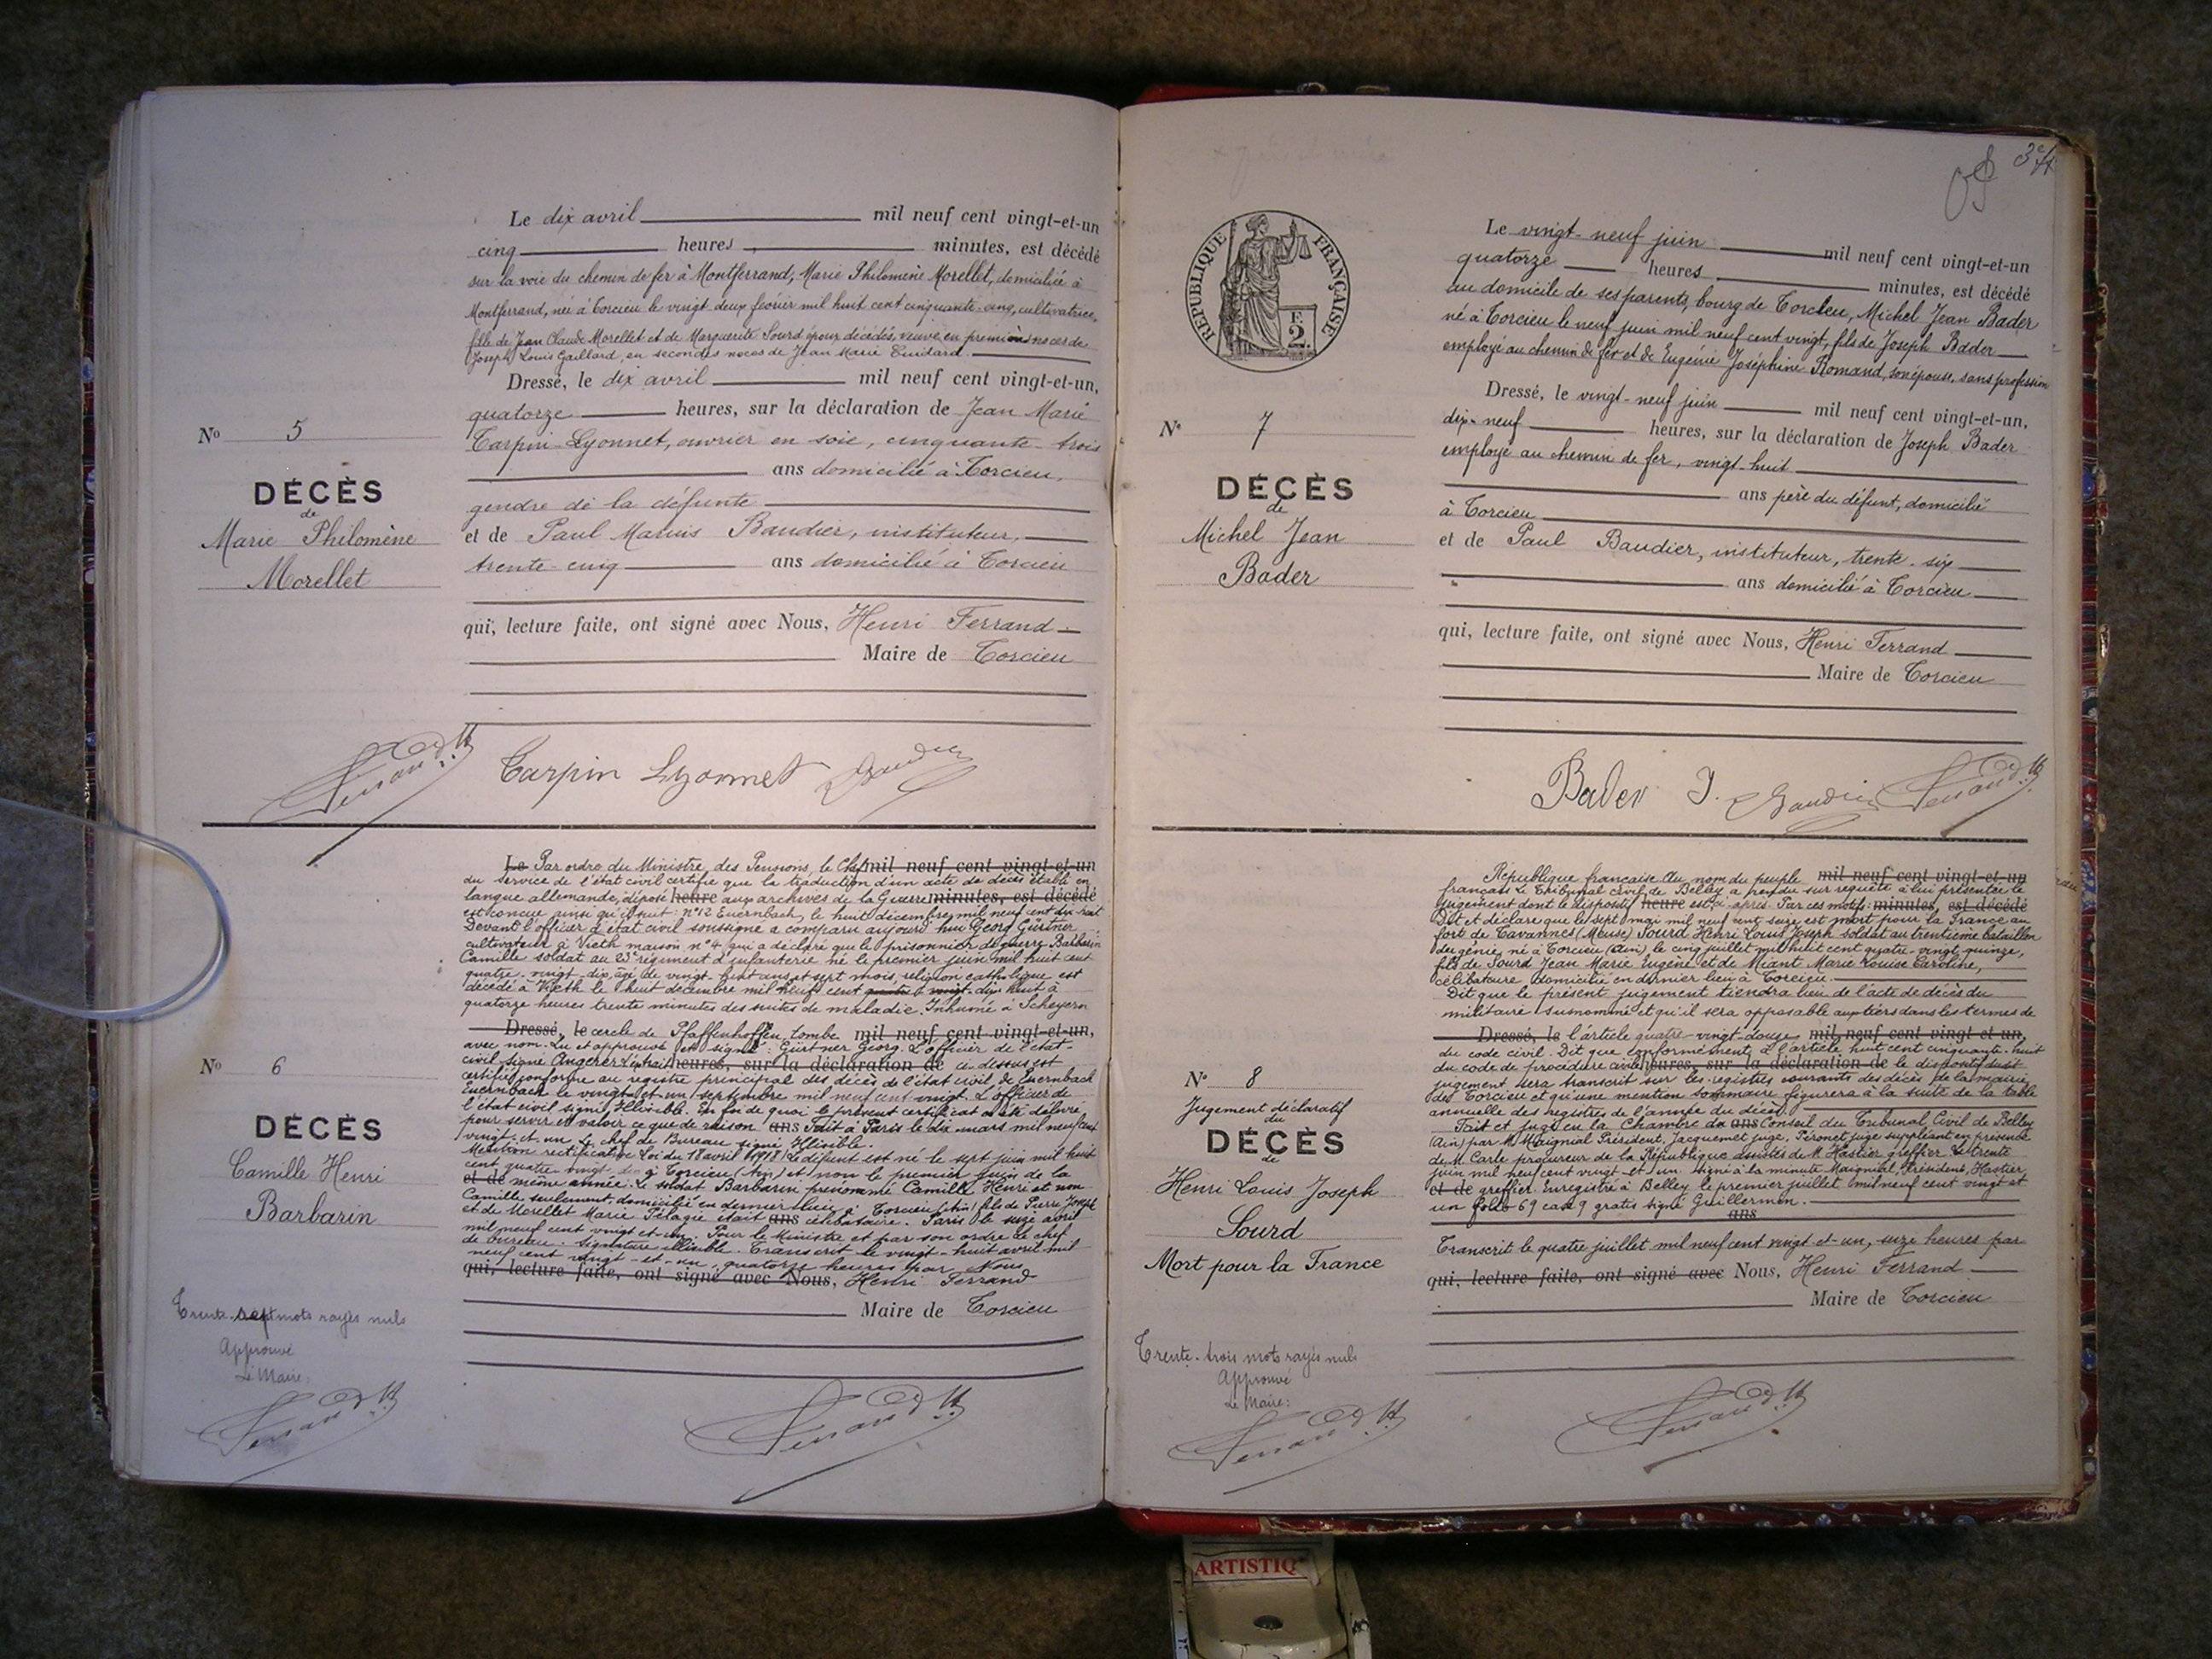 Le dix avril mil neuf cent vingt-et-un
cinq heures minutes, est décédé
sur la voie du chemin de fer à Montferrand, Marie Philomène Morellet, domiciliée à
Montferrand, née à Torcieu le vingt deux février mil huit cent cinquante-cinq, cultivatrice,
fille de Jean Claude Morellet et de Marguerite Sourd époux décédés, veuve en premières noces de
Joseph Louis Gaillard, en secondes noces de Jean Marie
Dressé, le dix avril mil neuf cent vingt-et-un,
quatorze heures, sur la déclaration de Jean Marie
Carpin-Lyonnet, ouvrier en soie, cinquante-trois
ans domicilié à Torcieu,
gendre de la défunte
et de Paul Marius Baudier, instituteur,
trente-cinq ans domicilié à Torcieu
qui, lecture faite, ont signé avec Nous, Henri Ferrand
Maire de Torcieu
No 5
DÉCÈS
de
Marie Philomène
Morellet
Ferrand H. Carpin Lyonnet Baudier
Le Par ordre du Ministre des Pensions, le Chef mil neuf cent vingt-et-un
du service de l'état civil certifie que la traduction d'un acte de décès établi en
langue allemande, déposé heure aux archives de la Guerre minutes, est décédé
est conçue ainsi qu'il suit: n°12 Euernbach, le huit décembre mil neuf cent dix-huit
Devant l'officier d'état civil soussigné a comparu aujourd'hui Georg Gürtner
cultivateur à Vieth maison n°4 qui a déclaré que le prisonnier de guerre Barbarin
Camille soldat au 23e régiment d'infanterie né le premier juin mil huit cent
quatre-vingt-dix, âgé de vingt-huit ans et sept mois, religion catholique est
décédé à Vieth le huit décembre mil neuf cent quatre vingt dix huit à
quatorze heures trente minutes des suites de maladie. Inhumé à Scheyern
Dressé, le cercle de Pfaffenhoffen, tombe mil neuf cent vingt-et-un,
avec nom. Lu et approuvé et signé: Gürtner Georg. L'officier de l'état-
civil signé Angerer L'extrait heures, sur la déclaration de ci-dessus est
certifié conforme au registre principal des décès de l'état civil de Euernbach
Euernbach le vingt et un septembre mil neuf cent vingt. L'officier de
l'état civil signé Illisible. En foi de quoi le présent certificat a été délivré
pour servir et valoir ce que de raison ans Fait à Paris le dix mars mil neuf cent
vingt-et-un Le chef de Bureau signé Illisible.
Mention rectificative Loi du 18 avril 1918) Le défunt est né le sept juin mil huit
cent quatre vingt dix à Torcieu (Ain) et non le premier juin de la
et de même année. Le soldat Barbarin prénommé Camille Henri et non
Camille seulement domicilié en dernier lieu à Torcieu (Ain) fils de Pierre Joseph
et de Morellet Marie Pélagie était ans célibataire. Paris le seize avril
mil neuf cent vingt et-un. Pour le Ministre et par son ordre Le chef
de bureau. Signature illisible. Transcrit le vingt-huit avril mil
neuf cent vingt-et-un, quatorze heures par Nous
qui, lecture faite, ont signé avec Nous, Henri Ferrand
Maire de Torcieu
No 6
DÉCÈS
de
Camille Henri
Barbarin
Trente-sept mots rayés nuls
Approuvé
Le Maire:
Ferrand H. Ferrand H.
3e
RÉPUBLIQUE FRANÇAISE
F.
2.
Le vingt-neuf juin mil neuf cent vingt-et-un
quatorze heures minutes, est décédé
au domicile de ses parents, bourg de Torcieu, Michel Jean Bader
né à Torcieu le neuf juin mil neuf cent vingt, fils de Joseph Bader
employé au chemin de fer et de Eugénie Joséphine Romand, son épouse, sans profession
Dressé, le vingt-neuf juin mil neuf cent vingt-et-un,
dix-neuf heures, sur la déclaration de Joseph Bader
employé au chemin de fer, vingt-huit
ans père du défunt, domicilié
à Torcieu
et de Paul Baudier, instituteur, trente-six
ans domicilié à Torcieu
qui, lecture faite, ont signé avec Nous, Henri Ferrand
Maire de Torcieu
No 7
DÉCÈS
de
Michel Jean
Bader
Bader J. Baudier Ferrand H.
République française Au nom du peuple mil neuf cent vingt-et-un
français Le Tribunal civil de Belley a rendu sur requête à lui présentée le
jugement dont le dispositif heure est ci-après. Par ces motifs: minutes, est décédé
Dit et déclare que le sept mai mil neuf cent seize est mort pour la France au
fort de Tavannes (Meuse) Sourd Henri Louis Joseph soldat au trentième bataillon
du génie, né à Torcieu (Ain) le cinq juillet mil huit cent quatre-vingt quinze,
fils de Sourd Jean Marie Eugène et de Miant Marie Louise Caroline,
célibataire domicilié en dernier lieu à Torcieu.
Dit que le présent jugement tiendra lieu de l'acte de décès du
militaire susnommé et qu'il sera opposable aux tiers dans les termes de
Dressé, le l'article quatre-vingt-douze mil neuf cent vingt et un,
du code civil. Dit que conformément à l'article huit cent cinquante-huit
du code de procédure civile heures, sur la déclaration de le dispositif dudit
jugement sera transcrit sur les registres courants des décès de la mairie
de Torcieu et qu'une mention sommaire figurera à la suite de la table
annuelle des registres de l'année du décès.
Fait et jugé en la Chambre du ans Conseil du Tribunal Civil de Belley
(Ain) par M. Maignial Président, Jacquemet juge, Péronet juge suppléant en présence
de M. Carle procureur de la République assistés de M. Hastier greffier le trente
juin mil neuf cent vingt-et-un. Signé à la minute Maignial, Président, Hastier,
et de greffier. Enregistré à Belley le premier juillet mil neuf cent vingt et
un folio 69 case 9 gratis signé Guillermen.
ans
Transcrit le quatre juillet mil neuf cent vingt-et-un, seize heures par
qui, lecture faite, ont signé avec Nous, Henri Ferrand
Maire de Torcieu
No 8
Jugement déclaratif
du
DÉCÈS
de
Henri Louis Joseph
Sourd
Mort pour la France
Trente-trois mots rayés nuls
Approuvé
Le Maire:
Ferrand H. Ferrand H.
ARTISTIQ